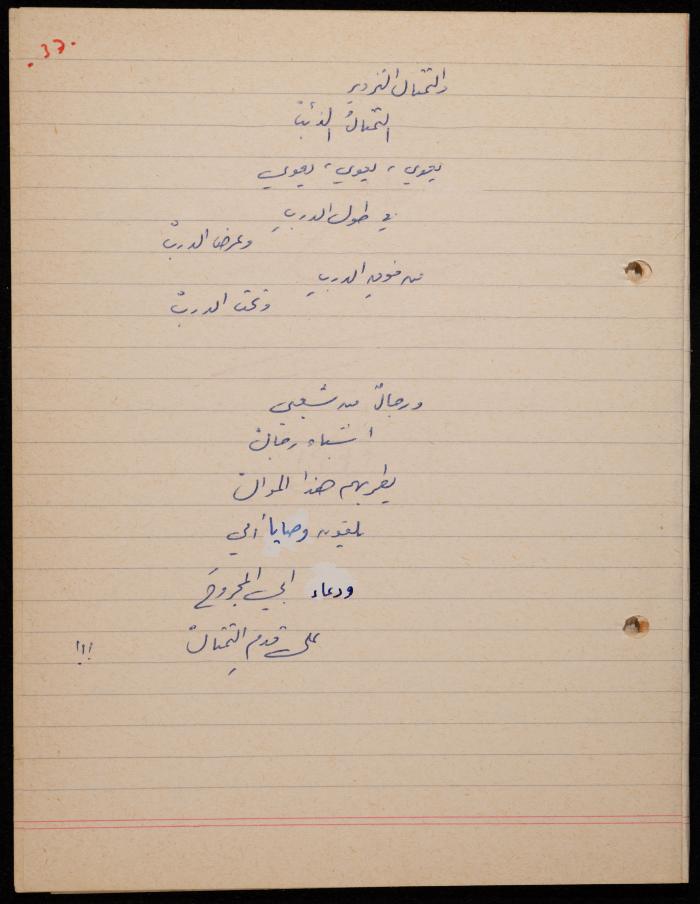 .37.
والتمثال التزوير
التمثالُ الذئبْ
يعوي، يعوي، يعوي
في طول الدربِ
وعرض الدربْ
من فوقِ الدربِ
وتحت الدربْ
ورجالٌ من شعبي
أشباه رجالْ
يطربهم هذا الموالْ
يلقون وصايا أمي
ودعاء أبي المجروحَ
على قدمِ التمثالْ
!!!